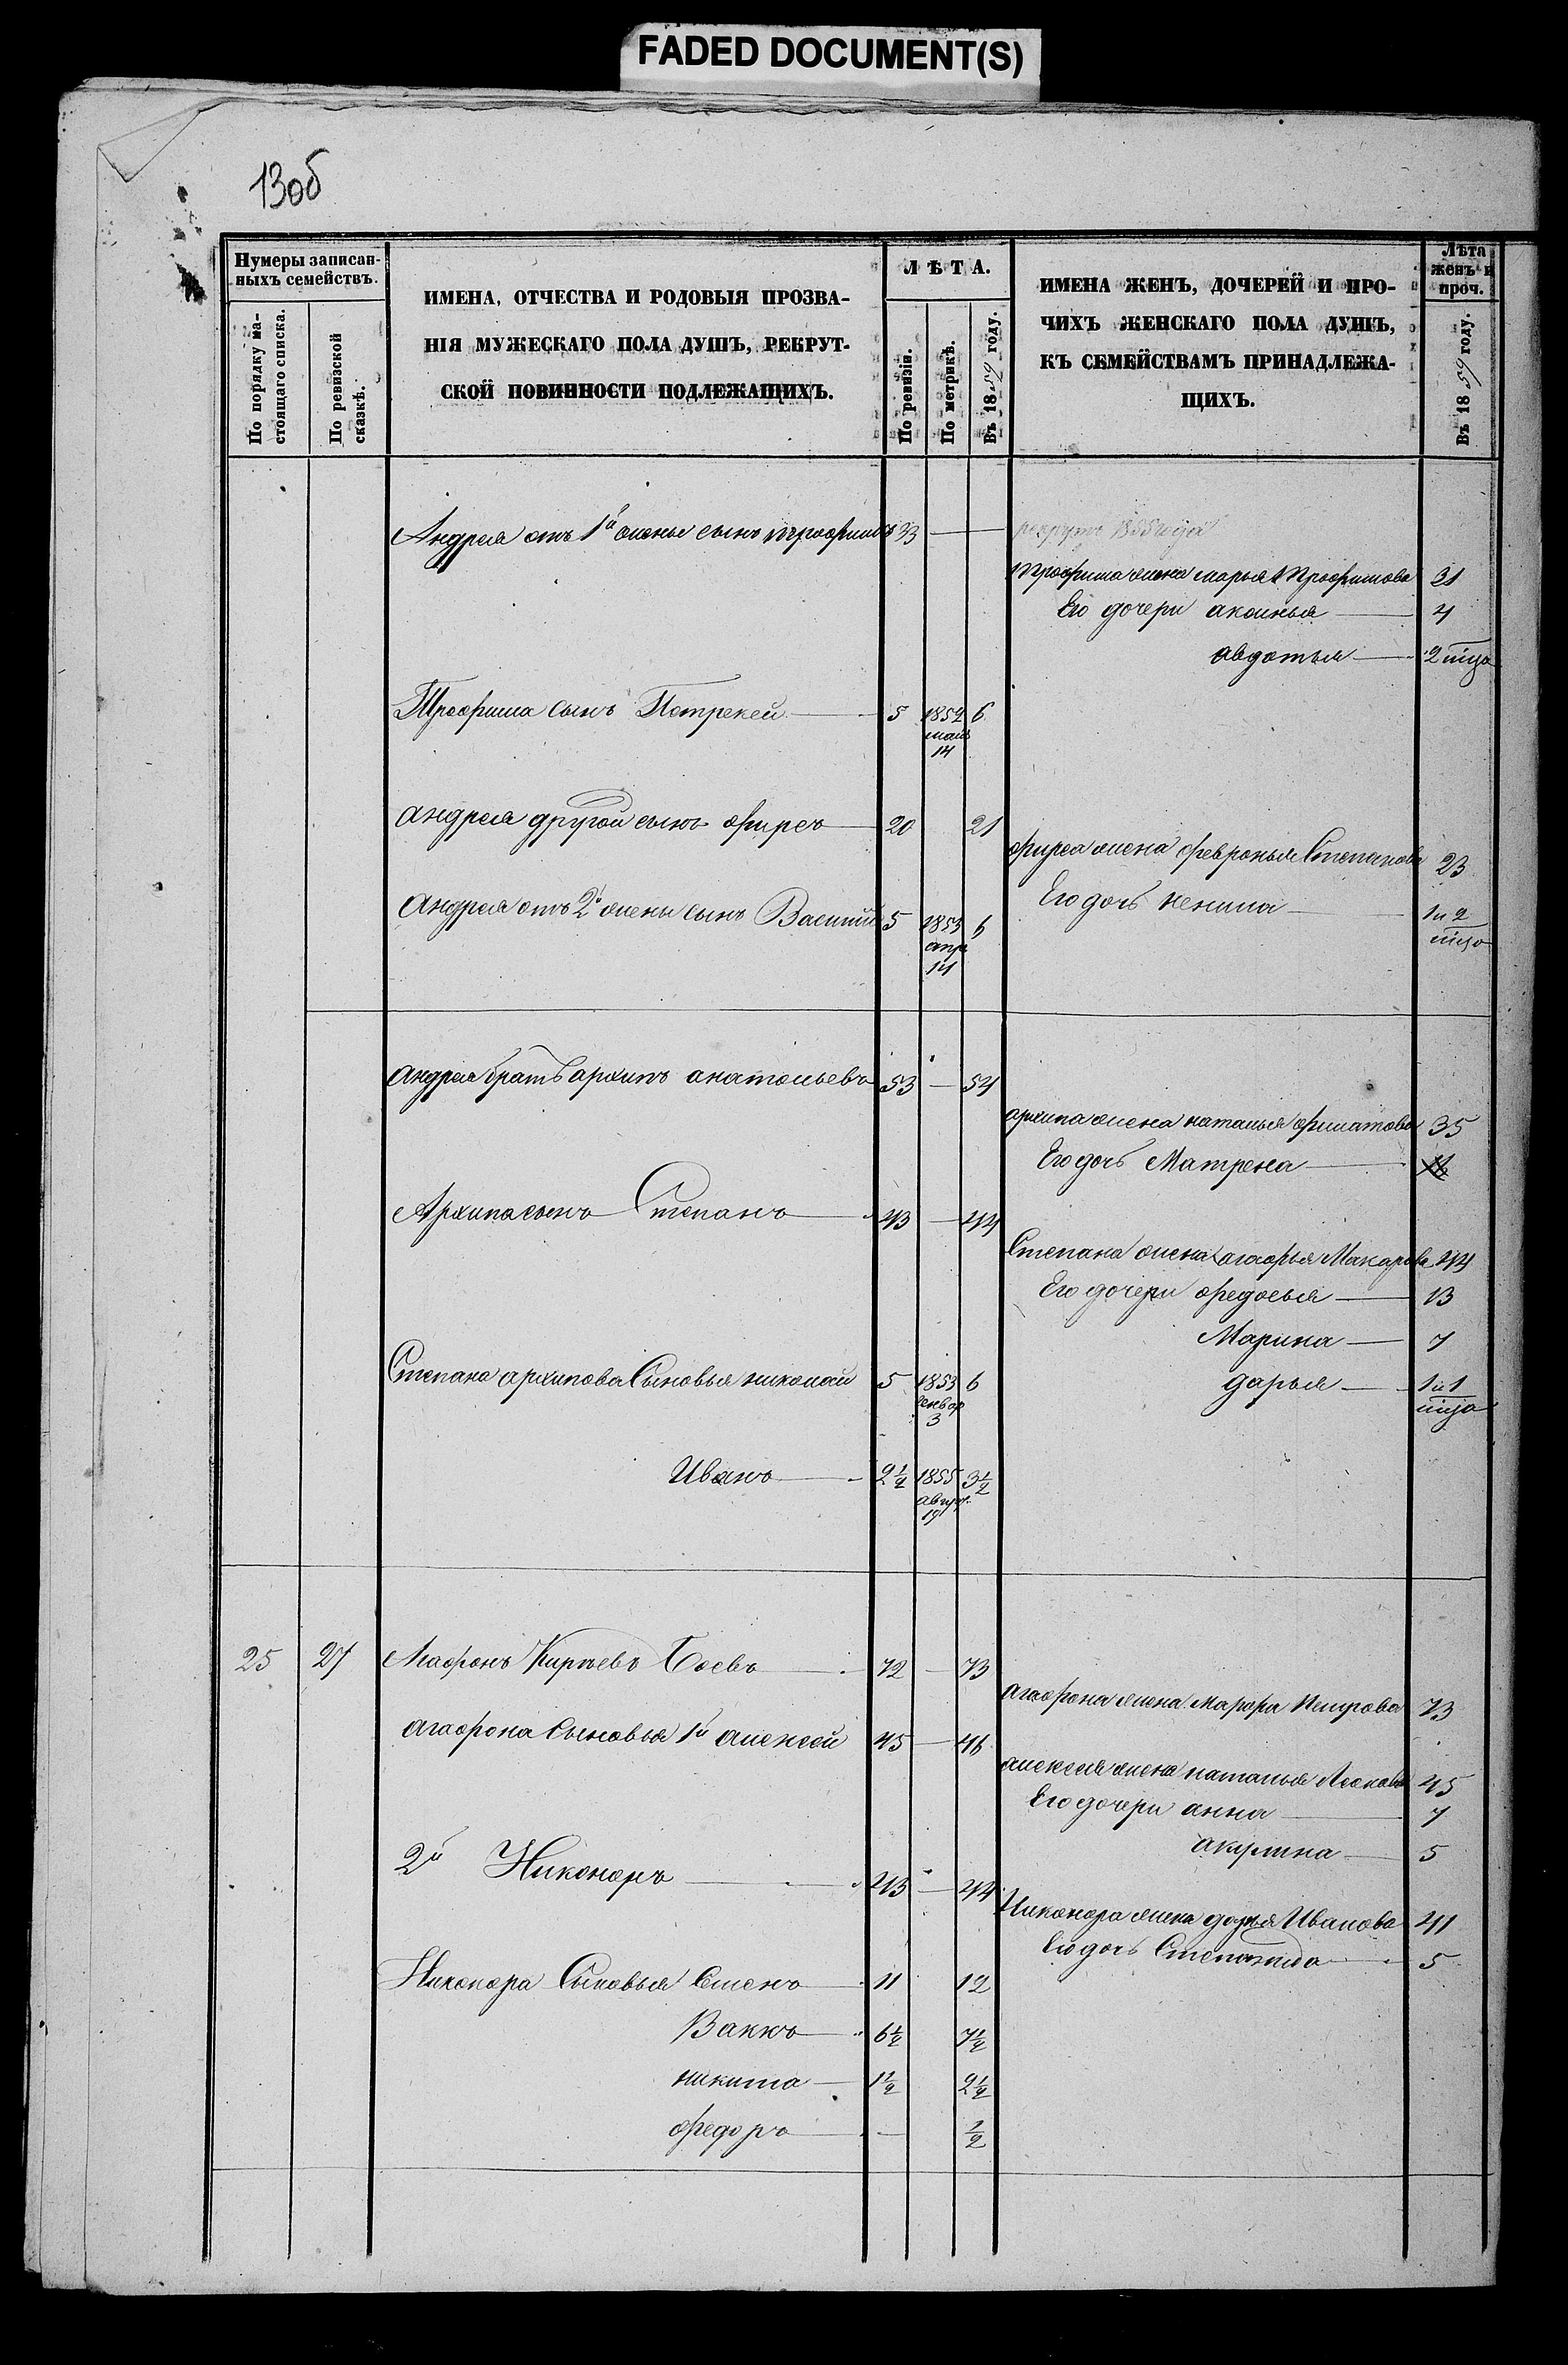 FADED DOCUMENT(S)
13об
Нумеры записан-
ныхъ семействъ.
По порядку на-
стоящаго списка.
По ревизской
сказкѣ.
ИМЕНА, ОТЧЕСТВА И РОДОВЫЯ ПРОЗВА-
НІЯ МУЖЕСКАГО ПОЛА ДУШЪ, РЕКРУТ-
СКОЙ ПОВИННОСТИ ПОДЛЕЖАЩИХЪ.
ЛѢТА.
По ревизіи.
По метрикѣ.
Въ 1859 году.
ИМЕНА ЖЕНЪ, ДОЧЕРЕЙ И ПРО-
ЧИХЪ ЖЕНСКАГО ПОЛА ДУШЪ,
КЪ СЕМЕЙСТВАМЪ ПРИНАДЛЕЖА-
ЩИХЪ.
Лѣта
женъ и
проч.
Въ 1859 году.
Андрея отъ 1й жены сынъ трофимъ 33 — рекрутъ 1855 года
трофима жена марья трофимова 31
Его дочери аксинья — 4
авдотья — 2 мѣца
Трофима сынъ Патрекей — 5 1852 6
маія
14
андрея другой сынъ фирсъ — 20 21
фирса жена февронья Степанова 23
андрея отъ 2й жены сынъ Василий 5 1853 6
апр
14
Его дочь ксенича — 1 и 2
мѣца
андрея братъ архипъ анатольевъ 53 — 54
архипа жена наталья филатова 35
Его дочь Матрена —
Архипа сынъ Степанъ — 43 — 44
Степана жена агафья Макарова 44
Его дочери федосья — 13
Марина — 7
Степана архипова Сыновья николай 5 1853 6
генвар
3
дарья — 1 и 1
мѣца
Иванъ — 2½ 1855 3½
авгус.
19
25 27 Агафонъ Кирѣевъ Боевъ — 72 — 73
агафона жена Марфа Петрова 73
агафона Сыновья 1й алексей 45 — 46
алексея жена наталья Леонова 45
Его дочери анна — 7
акулина — 5
2й Никоноръ — 43 — 44
Никонора жена дарья Иванова 41
Его дочь Степанида — 5
Никонора Сыновья Семенъ — 11 12
6½ 7½
никита — 1½ 2½
федоръ — — ½